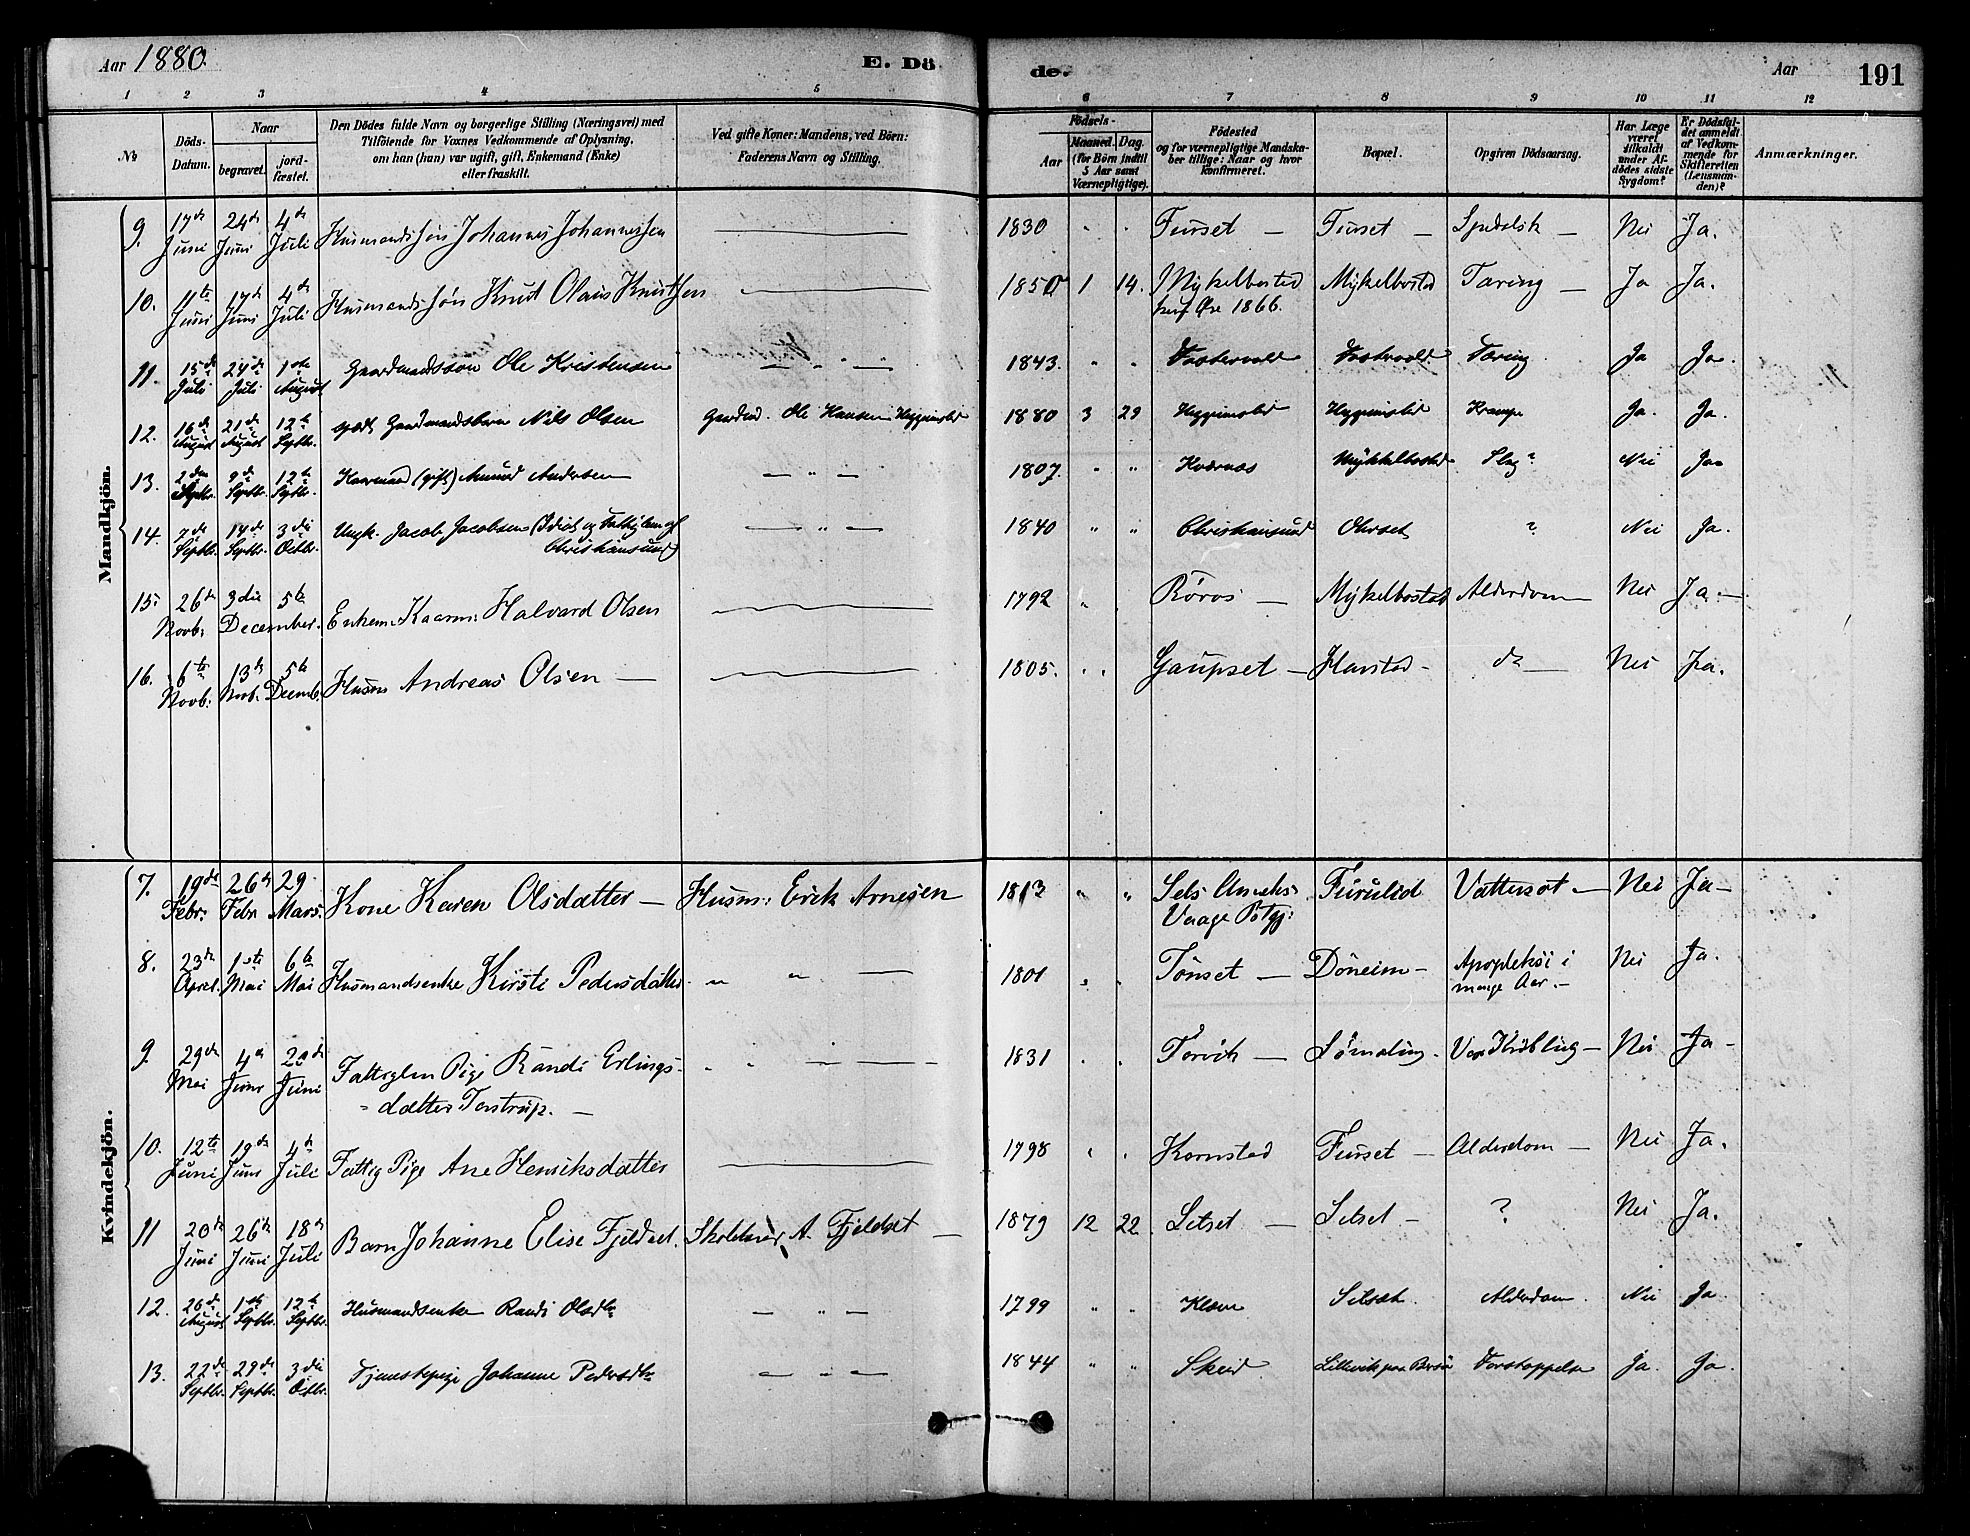 Aar 1880. E. Dö de. Aar 191
1 2 3 4 5 6 7 8 9 10 11 12
No Döds-Datum. Naar begravet. jordfæstet. Den Dödes fulde Navn og borgerlige Stilling (Næringsvei) med Tilföiende for Voxnes Vedkommende af Oplysning, om han (hun) var ugift, gift, Enkemand (Enke) eller fraskilt. Ved gifte Koner: Mandens, ved Börn: Faderens Navn og Stilling. Födsels- Aar Maaned. Dag. (for Börn indtil 5 Aar samt Værnepligtige). Födested og for værnepligtige Mandskaber tillige: Naar og hvor konfirmeret. Bopæl. Opgiven Dödsaarsag. Har Læge været tilkaldt under Afdödes sidste Sygdom? Er Dödsfaldet anmeldt af Vedkommende for Skifteretten (Lensmanden)? Anmærkninger.
Mandkjön.
9. 17de Juni 24de Juni 4de Juli Husmandssön Johannes Johannessen — 1830 " " Furset — Furset — Spedalsk — Nei Ja.
10. 11te Juni 17de Juni 4de Juli Husmandssön Knut Olaus Knutsen — 1850 1 14. Mykelbostad Mykelbostad Tæring — Ja Ja.
konf Öre 1866.
11. 15de Juli 24de Juli 1ste August Gaardmandssön Ole Kristensen — " — 1843. " " Tæring Ja Ja
12. 16de August 21de August 12te Septbr. Gaardmandsbarn Nils Olsen Gaardmd. Ole Hansen 1880 3 29 Krampe Ja. Ja.
13. 2den Septbr. 9de Septbr. 12te Septbr. Kaarmand (gift) Amund Andersen — " — 1807. " " Kvernes Mykkelbostad Slag? Nei Ja
14. 7de Septbr. 14de Septbr. 3die Octbr. Ungk. Jacob Jacobsen (Idiot og Fattiglem af — " — 1840 " " Christiansund ? Nei Ja.
Christiansund)
15. 26de Novb. 3die 5te December. Enkem. Kaarm: Halvard Olsen — 1792 " " Röros — Mykelbostad Alderdom — Nei Ja. —
16. 6te Novb. 13de Novb. 5te Decemb. Husm Andreas Olsen — — 1805. " " Gaupset — Harstad — do — Nei Ja.
Kvindekjön.
7. 19de Febr. 26de Febr 29 Mars. Kone Karen Olsdatter — Husm: Erik Arnesen 1813 " " Sels Anneks Furulid Vattersot — Nei Ja —
Vaage Pstgj:
8. 23de April. 1ste Mai 6te Mai Husmandsenke Kirsti Pedersdatter — " — 1801 " " Tönset — Döneim — Apopleksi i Nei Ja.
mange Aar. —
9. 29de Mai 4de Juni 20de Juni Fattiglem Pige Randi Erlings- " " — 1831 " " Torvik — Nei Ja —
datter Tostrup. —
10. 12te Juni 19de Juni 4de Juli Fattig Pige Ane Henriksdatter — 1798 " " Kornstad Furset — Alderdom — Nei Ja.
11 20de Juni 26de Juni 18de Juli Barn Johanne Elise Fjeldset. Skolelærer A. Fjeldset — 1879 12 22 Setset — Setset — ? Nei Ja.
12. 26de August 1ste Septbr. 12te Septbr. Husmandsenke Randi Olsdtr — " — 1799 " " Alderdom. Nei Ja
13. 22de Septbr. 29de Septbr. 3die Octbr. Tjenestepige Johanne Pedersdtr — " — 1844 " " Skeid Forstoppelse Ja. Ja.